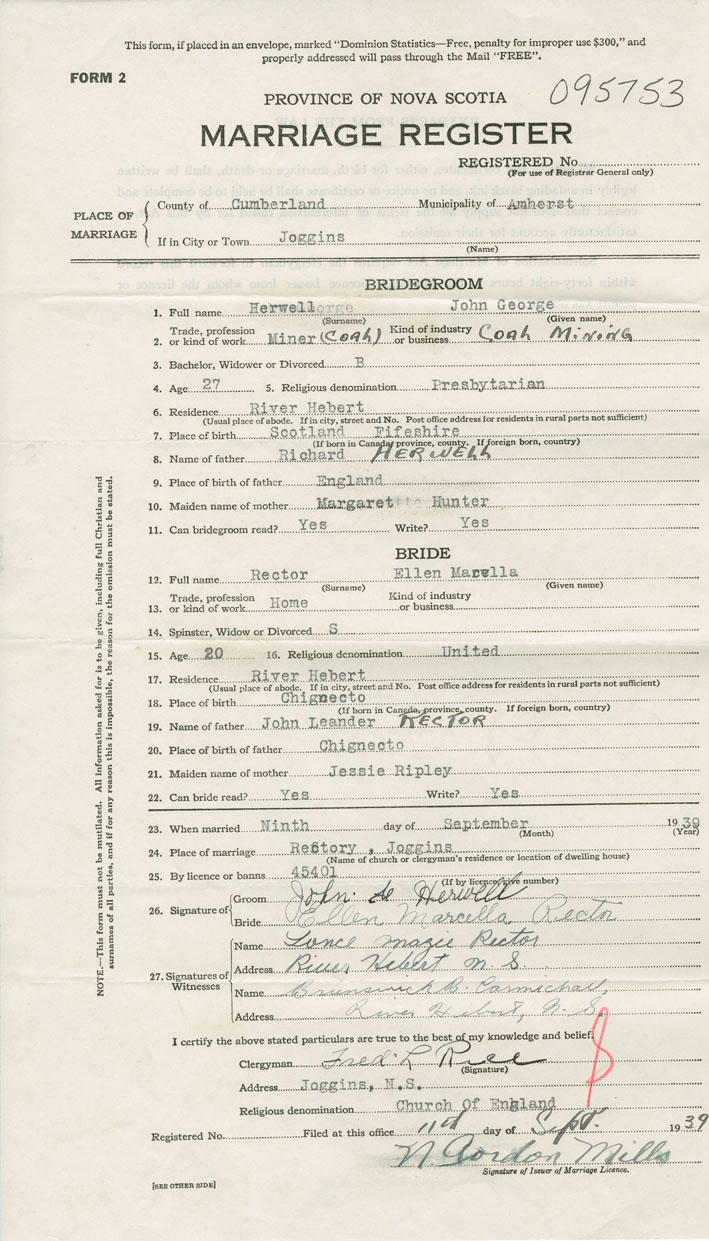 This form, if placed in an envelope, marked "Dominion Statistics—Free, penalty for improper use $300," and
properly addressed will pass through the Mail "FREE".
FORM 2
PROVINCE OF NOVA SCOTIA 095753
MARRIAGE REGISTER
REGISTERED No.
(For use of Registrar General only)
PLACE OF MARRIAGE
County of Cumberland Municipality of Amherst
If in City or Town Joggins
(Name)
BRIDEGROOM
1. Full name Herwell John George
(Surname) (Given name)
2. Trade, profession or kind of work Miner (Coal) Kind of industry or business Coal Mining
3. Bachelor, Widower or Divorced B
4. Age 27 5. Religious denomination Presbytarian
6. Residence River Hebert
(Usual place of abode. If in city, street and No. Post office address for residents in rural parts not sufficient)
7. Place of birth Scotland Fifeshire
(If born in Canada, province, county. If foreign born, country)
8. Name of father Richard HERWELL
9. Place of birth of father England
10. Maiden name of mother Margaret Hunter
11. Can bridegroom read? Yes Write? Yes
BRIDE
12. Full name Rector Ellen Marcella
(Surname) (Given name)
13. Trade, profession or kind of work Home Kind of industry or business
14. Spinster, Widow or Divorced S
15. Age 20 16. Religious denomination United
17. Residence River Hebert
(Usual place of abode. If in city, street and No. Post office address for residents in rural parts not sufficient)
18. Place of birth Chignecto
(If born in Canada, province, county. If foreign born, country)
19. Name of father John Leander RECTOR
20. Place of birth of father Chignecto
21. Maiden name of mother Jessie Ripley
22. Can bride read? Yes Write? Yes
23. When married Ninth day of September 1939
(Month) (Year)
24. Place of marriage Rectory , Joggins
(Name of church or clergyman's residence or location of dwelling house)
25. By licence or banns 45401
(If by licence, give number)
26. Signature of
Groom John Herwell
Bride Ellen Marcella Rector
27. Signatures of Witnesses
Name Mazie Rector
Address River Hebert N. S.
Name Brunswick B. Carmichael
Address River Hebert, N. S.
I certify the above stated particulars are true to the best of my knowledge and belief.
Clergyman Fred. L Rice
(Signature)
Address Joggins, N.S.
Religious denomination Church Of England
Registered No. Filed at this office 11th day of Sept. 1939
N. Gordon Mills
Signature of Issuer of Marriage Licence.
[SEE OTHER SIDE]
NOTE.—This form must not be mutilated. All information asked for is to be given, including full Christian and
surnames of all parties, and if for any reason this is impossible, the reason for the omission must be stated.